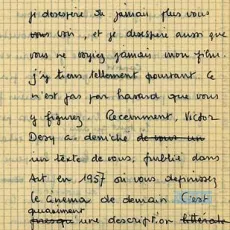 je désespère de jamais plus vous
vous voir, et je désespère aussi que
vous ne voyiez jamais mon film
j'y tiens tellement pourtant. Ce
n'est pas par hasard que vous
y figurez. Récemment, Victor
a déniché de vous un
un texte de vous, publié dans
Art en 1957 où vous définissez
le cinéma de demain. C'est
quasiment
presque une description littérale